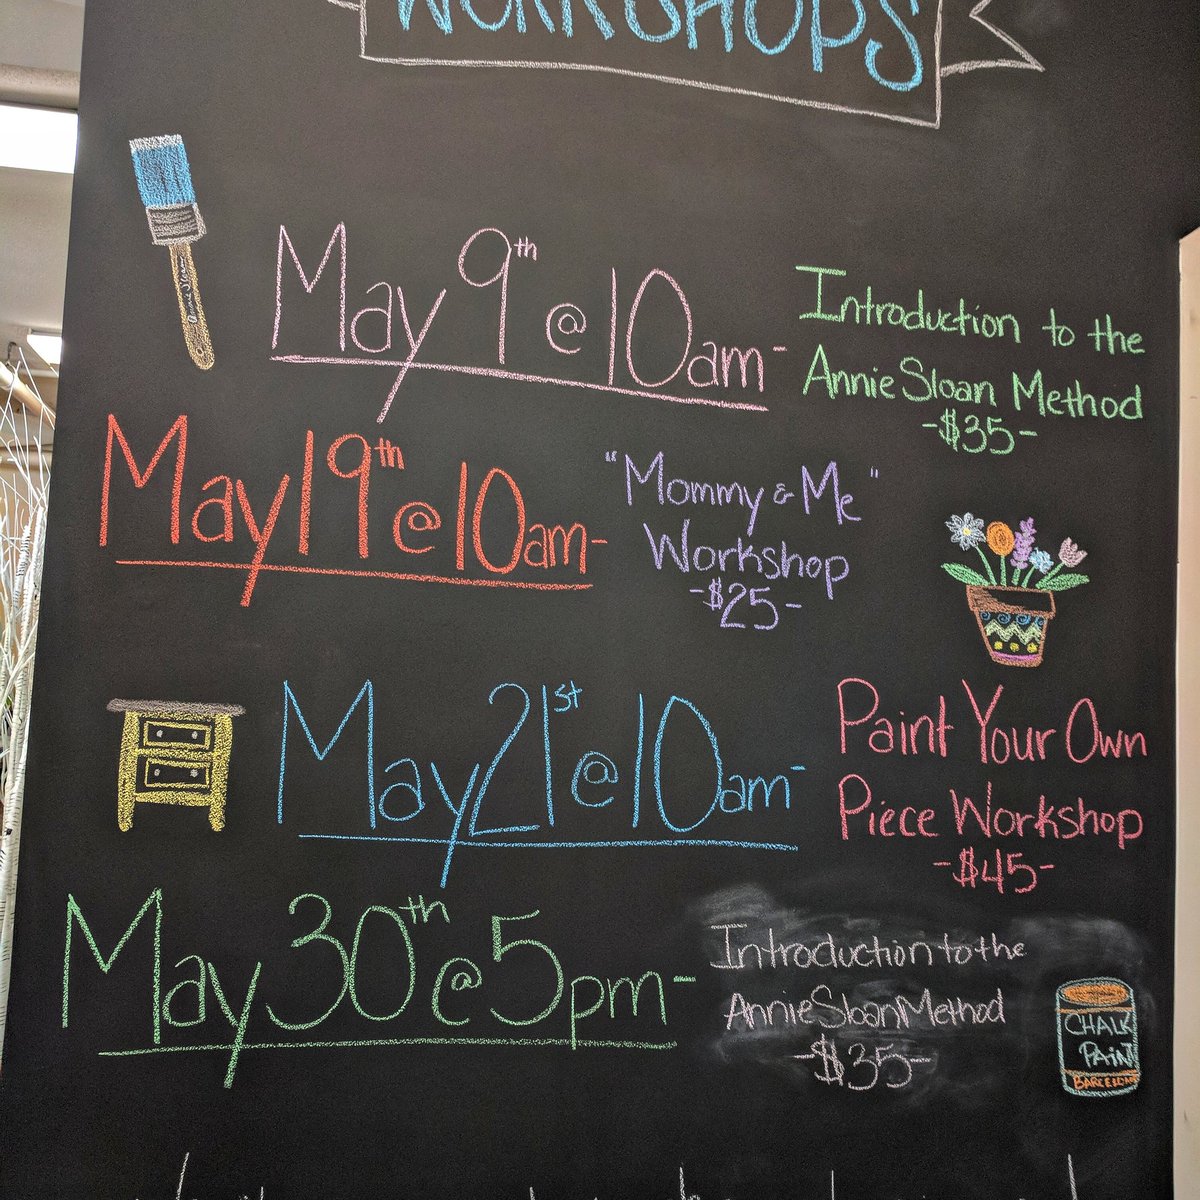 WORKSHOPS
May 9th @ 10am -
Introduction to the
Annie Sloan Method
-$35-
May 19th @ 10am -
"Mommy & Me"
Workshop
-$25-
May 21st @ 10am -
Paint Your Own
Piece Workshop
-$45-
May 30th @ 5pm -
Introduction to the
Annie Sloan Method
-$35-
CHALK
PAINT
BARCELONA
Annie Sloan